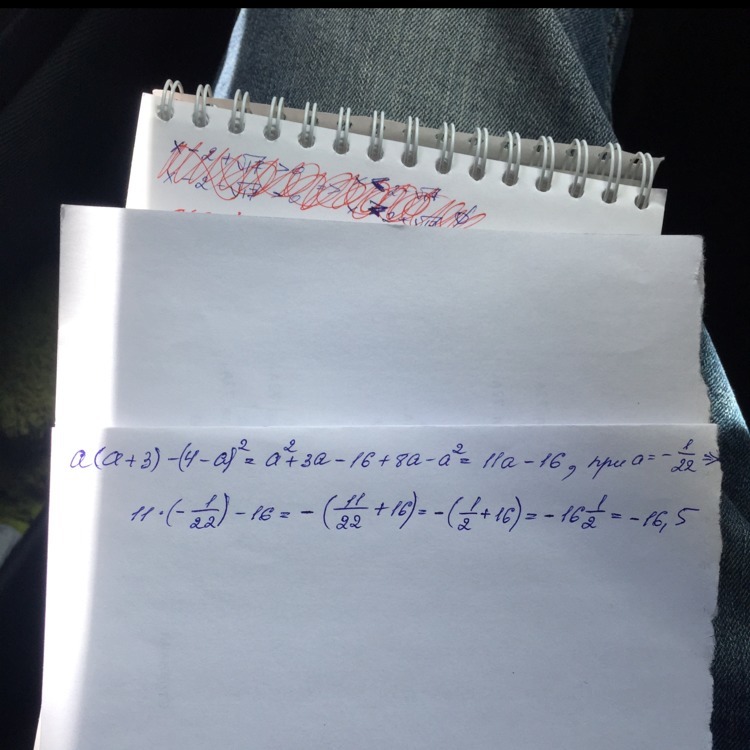 a(a+3)-(4-a)² = a²+3a-16+8a-a² = 11a-16, при a = -1/22 ⇒
11·(-1/22)-16 = -(11/22+16) = -(1/2+16) = -16 1/2 = -16,5